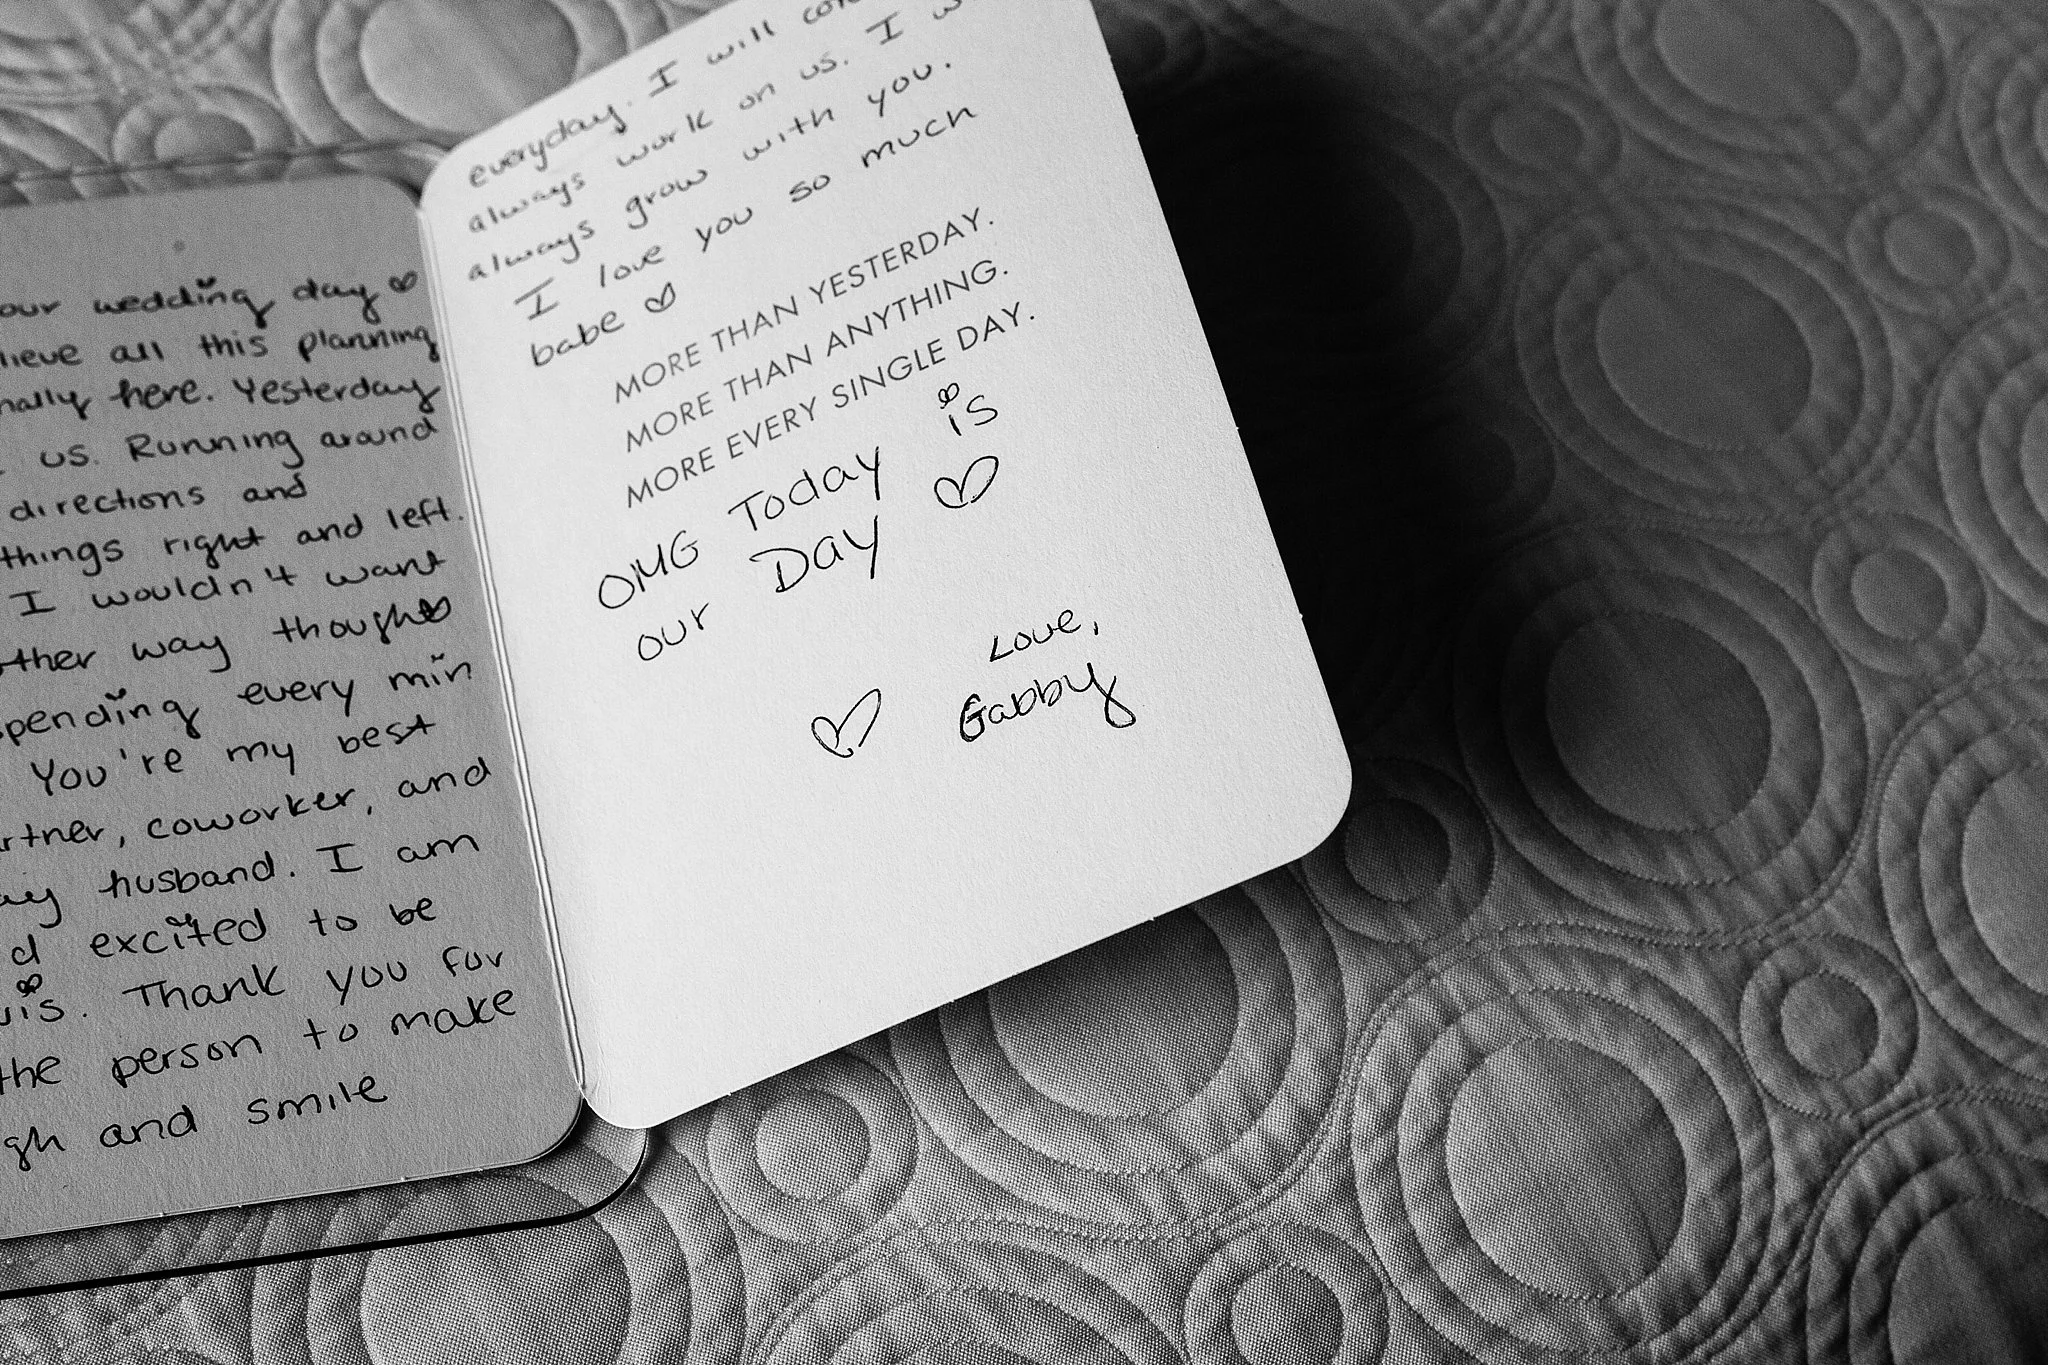 our wedding day
all this planning
here. Yesterday
us. Running around
directions and
things right and left.
I wouldn't want
way though
spending every min
You're my best
coworker, and
husband. I am
excited to be
Thank you for
the person to make
and smile
everyday. I will
always work on us. I
always grow with you.
I love you so much
babe
MORE THAN YESTERDAY.
MORE THAN ANYTHING.
MORE EVERY SINGLE DAY.
OMG Today is
our Day
Love,
Gabby